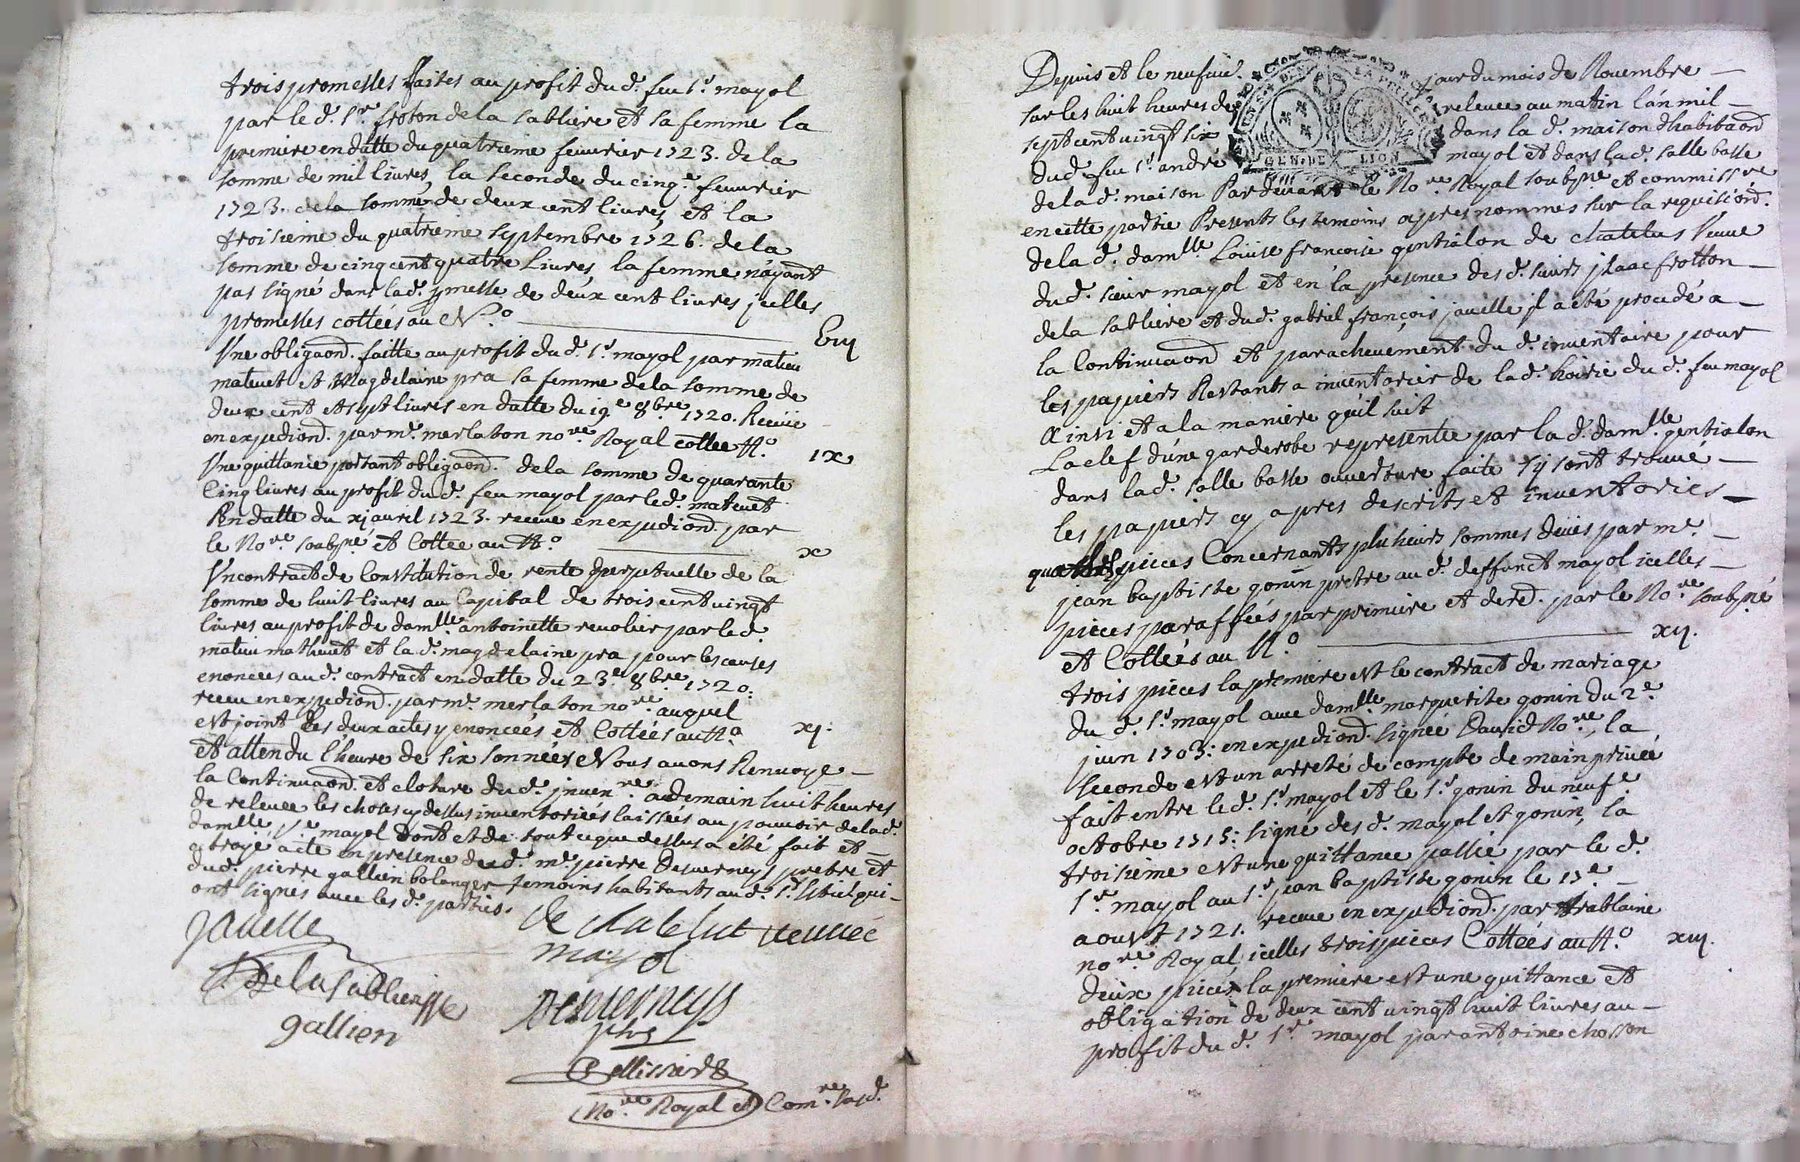 trois promesses faites au profit dud. feu sr. mayol
par le d. sr. froton de la sabliere et sa femme la
premiere en datte du quatrieme feuvrier 1723. de la
somme de mil livres, la seconde du cinqe. feuvrier
1723. de la somme de deux cent livres, et la
troisieme du quatrieme septembre 1726. de la
somme de cinq cent quatre livres, la femme n'ayant
pas signé dans lad. pmesse de deux cent livres jcelles
promesses cottées au No.
Une obligaond. faitte au profit dud. sr. mayol par matieu
matevet et Magdelaine pra sa femme de la somme de
deux cent et sept livres en datte du 19e 8bre 1720. Receüe
en expediond. par me. merlaton nore. Royal cottée No. ix
Une quittance portant obligaond. de la somme de quarante
cinq livres au profit dud. feu mayol par led. matevet
En datte du xj avril 1723. receue en expediond. par
le Nore. soubsne. et Cottée au No. x
Un contract de Constitution de rente perpetuelle de la
somme de huit livres au Capital de trois cent vingt
livres au profit de damlle. antoinette revolier par led.
matieu mathevet et la d. magdelaine pra pour les causes
enoncees aud. contract en datte du 23e 8bre 1720:
receu en expediond. par me. merlaton nore. auquel
est joint les deux actes y enoncées et Cottées au No. xj.
et attendu l'heure de six sonnées Nous avons Renvoyé
la Continuaond. et cloture dud. jnvenre. a demain huit heures
de relevee les choses cy dessus inventoriées laissées au pouvoir de lad.
damlle. ve. mayol dont et de tout ce que dessus a été fait et
octroyé acte en presence dud. me. pierre Desverneys prebre et
dud. pierre gallien bolanger temoins habitants aud. st. Etiene qui
ont signés avec les d. parties.
javelle de chatelut veuuee
mayol
De la sabliere
gallien Desverneys
pbre
Bellissard
Nore. Royal et Comre. susd.
Depuis et le neufvie. jour du mois de Novembre
sur les huit heures de relevee au matin l'an mil
sept cent vingt six dans la d. maison d'habitaond
dud. feu sr. andré mayol et dans lad. salle basse
de la d. maison Par devant le Nore. Royal soubsne. et commissre
en cette partie Presents les temoins apres nommés sur la requisiond.
de la d. damlle. Louise francoise gentialon de chatelus veuve
dud. sieur mayol et en la presence des d. sieurs jsaac frotton
de la sabliere et dud. gabriel françois javelle jl a été procedé a
la Continuaond et parachevement du d. inventaire pour
les papiers Restants a inventorier de lad. hoirie du d. feu mayol
Ainsi et a la maniere qu'il suit
La clef d'une garderobe representée par la d. damlle. gentialon
dans lad. salle basse ouverture faite s'y sont trouvé
les papiers cy apres descrits et inventoriés
pieces Concernants plusieurs sommes deües par me.
jean baptiste gonin pretre au d. deffunct mayol icelles
pieces paraffées par premiere et dered. par le Nore. soubsne
et Cottées au No. xij.
trois pieces la premiere est le contract de mariage
du d. sr. mayol avec damlle. marguerite gonin du 2e
juin 1705: en expediond. signée David Nore., la
seconde est un arreté de compte de main privée
fait entre le d. sr. mayol et le sr. gonin du neufe.
octobre 1715: signé des d. mayol et gonin, la
troisieme est une quittance passée par le d.
sr. mayol au sr. jean baptiste gonin le 13e
aoust 1721. receue en expediond. par trablaine
nore. Royal, icelles trois pieces Cottées au No. xiij.
deux pieces la premiere est une quittance et
obligation de deux cent vingt huit livres au
profit du d. sr. mayol par antoine chosson
GEN. DE LION